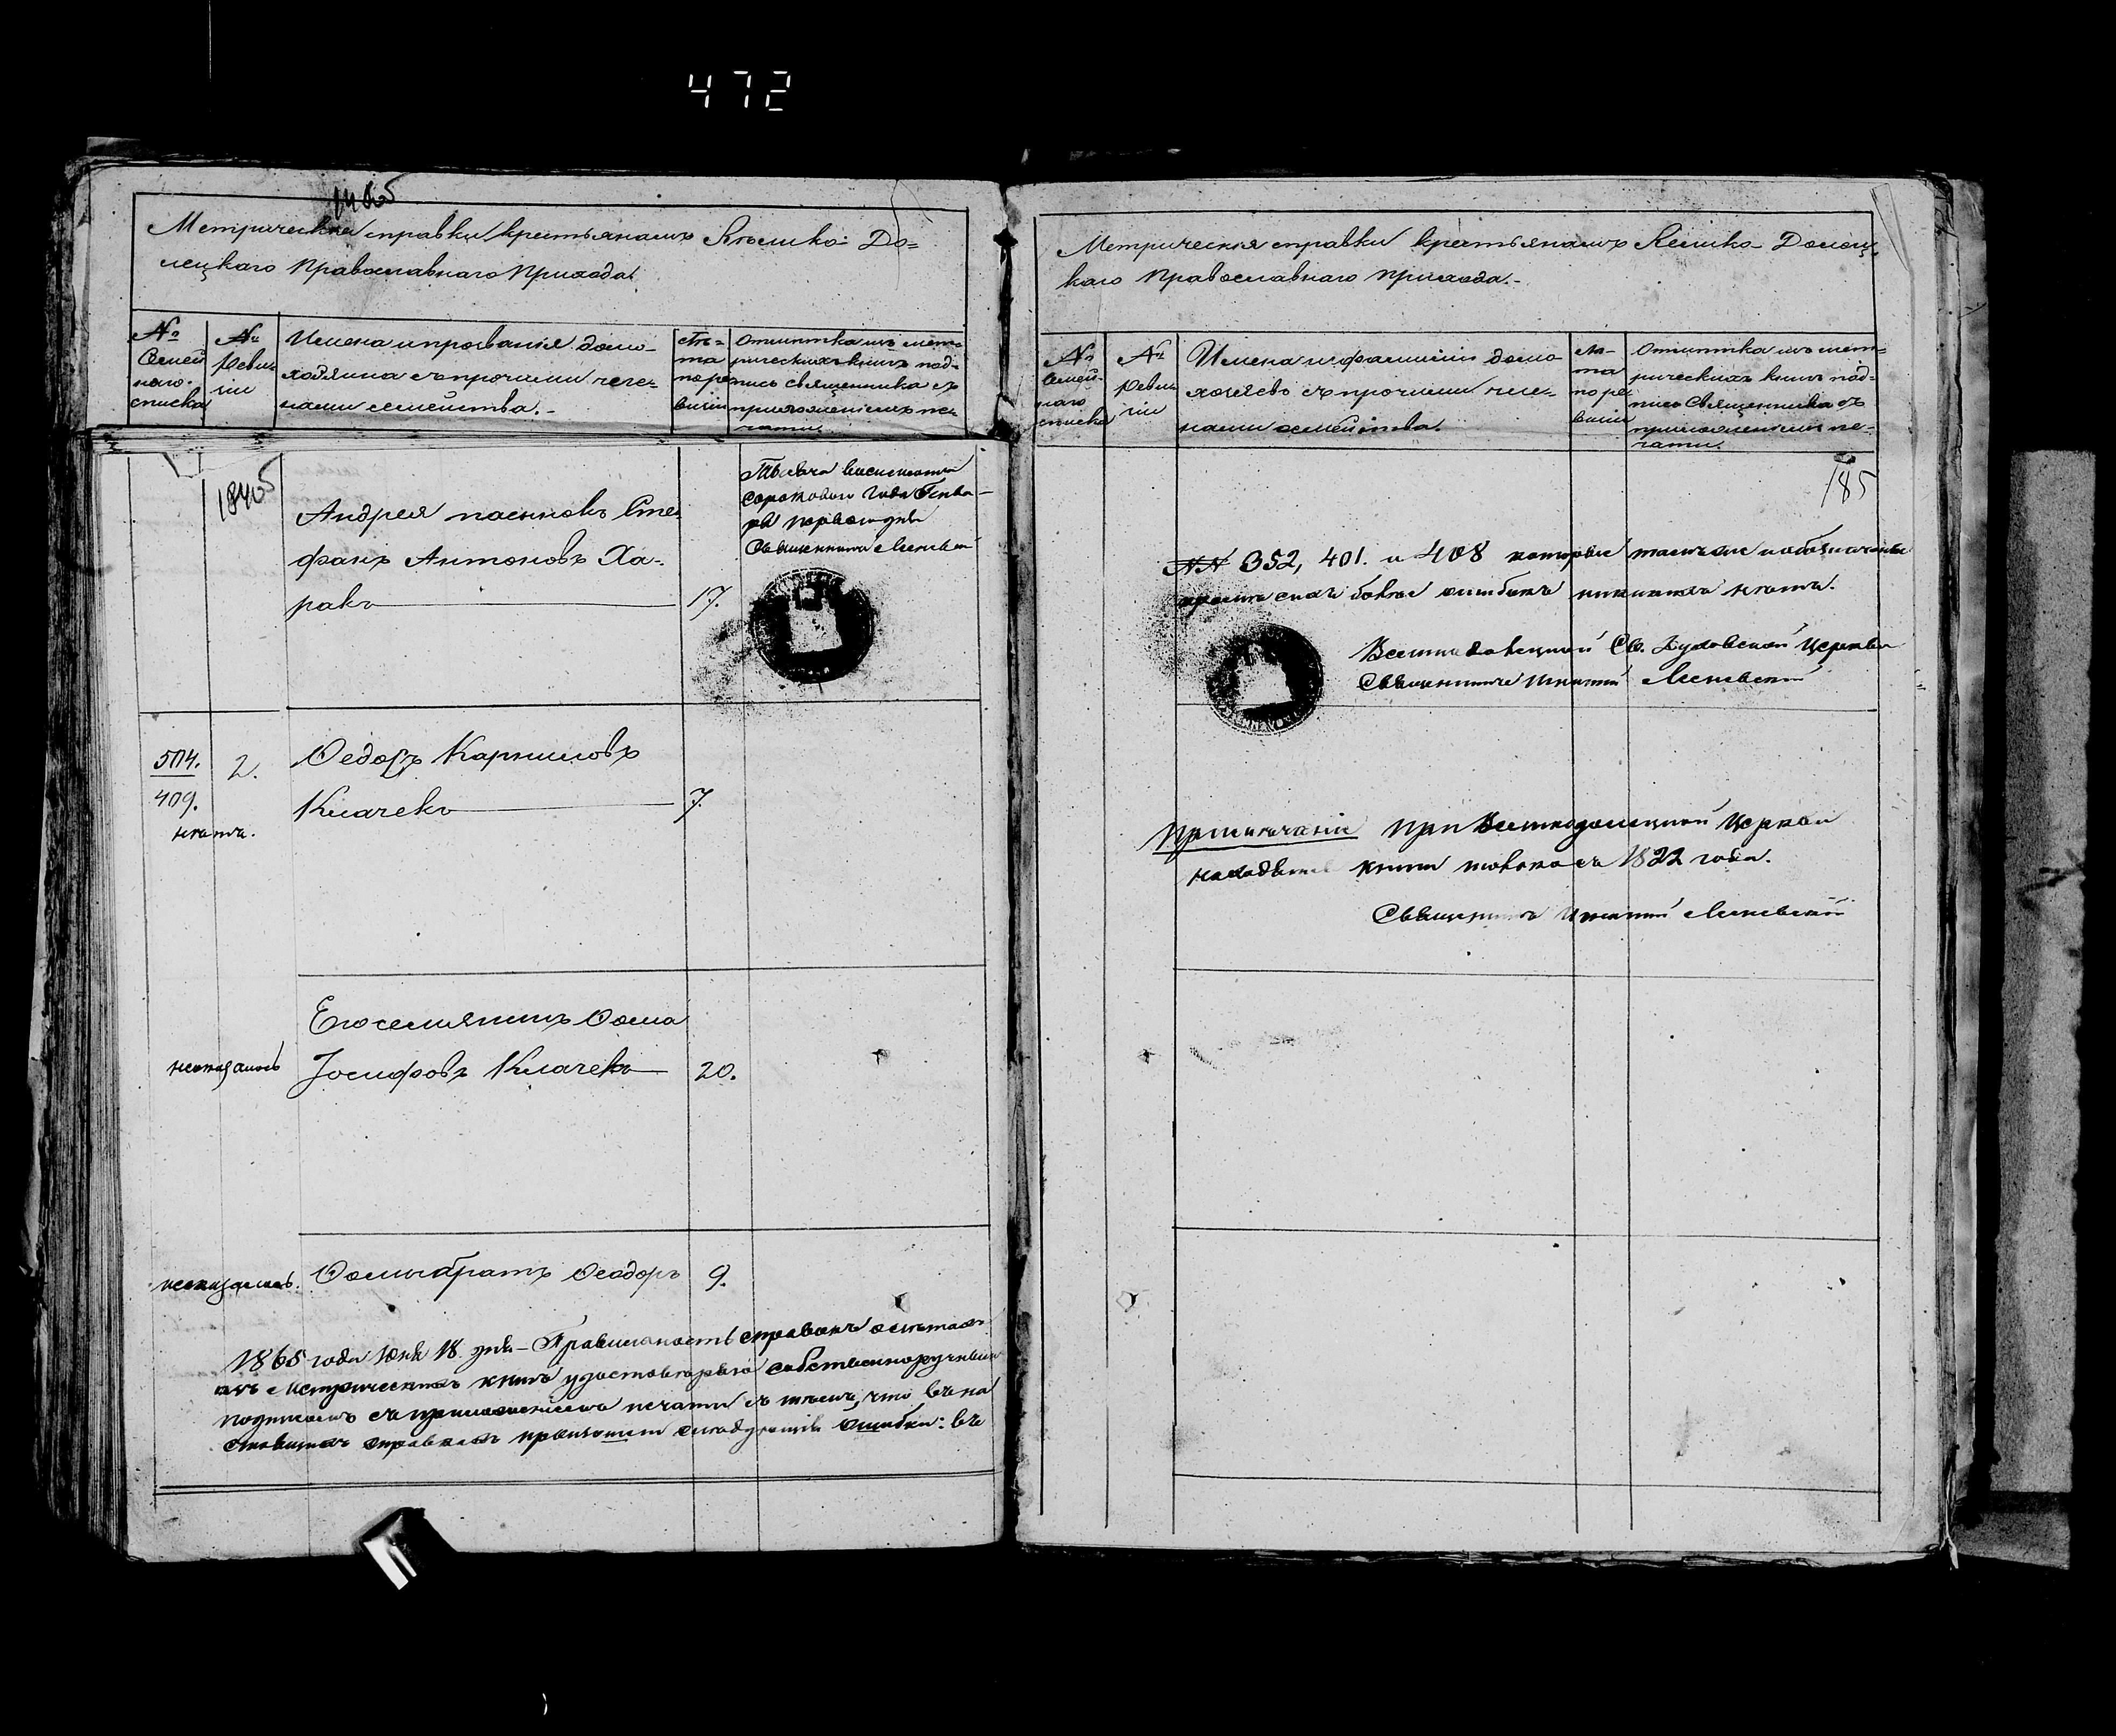 472
Метрическія справки крестьянамъ Велико-До=
лецкаго Православнаго Прихода.
№ Семей наго списка
№ Реви- зіи
Имена и прозванія домо-
хозяина съ прочими чле-
нами семейства.-
Лѣ-
та
по ре
визіи
Отмѣтка изъ мет-
рическихъ книгъ под-
пись священника съ
приложеніемъ пе-
чати.
1840
Андрея пасынокъ Сте-
фанъ Антоновъ Ха-
ракъ 17.
Тысяча восемьсотъ
сороковаго года Генва-
ря перваго дня
Священникъ
504.
409.
нѣтъ.
2.
Ѳедоръ Карниловъ
Клачекъ 7.
Его семянинъ Ѳома
неоказалось Іосифовъ Клачекъ 20.
неоказалось. Ѳомы братъ Ѳеодоръ 9.
1865 года Юня 18 дня - Правильность справокъ
метрическихъ книгъ удостовѣряю собственноручнымъ
подписомъ съ приложеніемъ печати съ тѣмъ, что въ на
стоящихъ справкахъ произошли слѣдующія ошибки: въ
Метрическія справки крестьянамъ Велико-Долец-
каго Православнаго Прихода.-
№ Семей- наго списка
№ Реви- зіи
Имена и фамиліи домо
хозяевъ съ прочими чле-
нами семейства.
Лѣ-
та
по ре
визіи
Отмѣтка изъ мет-
рическихъ книгъ под-
пись Священника съ
приложеніемъ пе-
чати.
185
№№ 352, 401. и 408 которые
болѣе ошибокъ никакихъ нѣтъ.
Великодолецкой Св. Духовской Церкви
Священникъ Игнатій
Примѣчаніе При Великодолецкой Церкви
находятся книги только съ 1822 года.
Священникъ Игнатій